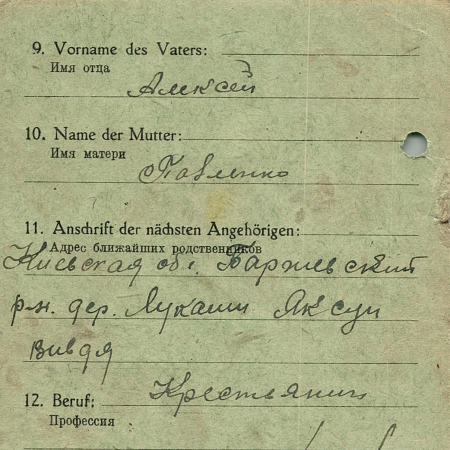 9. Vorname des Vaters:
Имя отца
Алексей
10. Name der Mutter:
Имя матери
Павленко
11. Anschrift der nächsten Angehörigen:
Адрес ближайших родственников
Киевская обл.
р-н. дер. Лукаши
12. Beruf: Крестьянин
Профессия